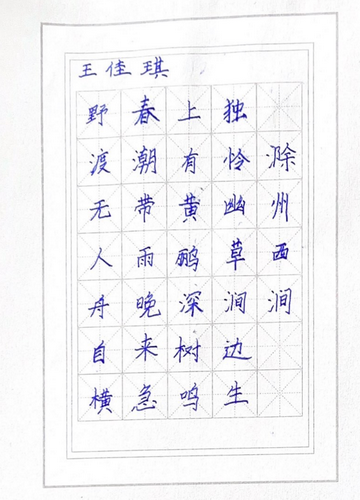 王佳琪
滁州西涧
独怜幽草涧边生
上有黄鹂深树鸣
春潮带雨晚来急
野渡无人舟自横